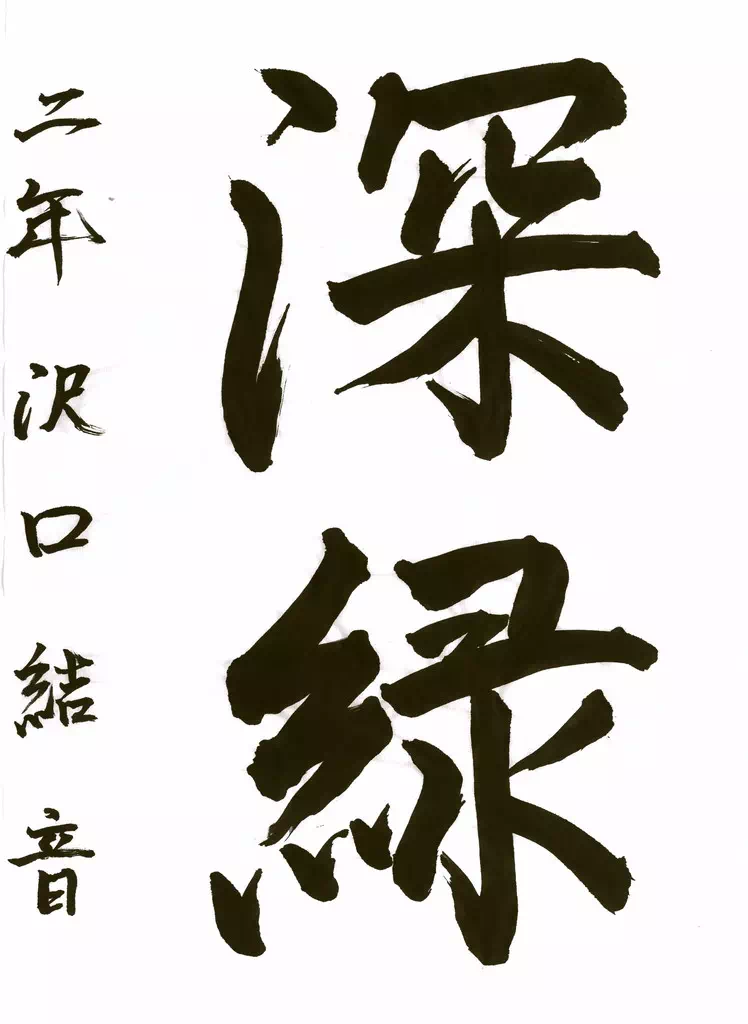 深緑
二年 沢口結音